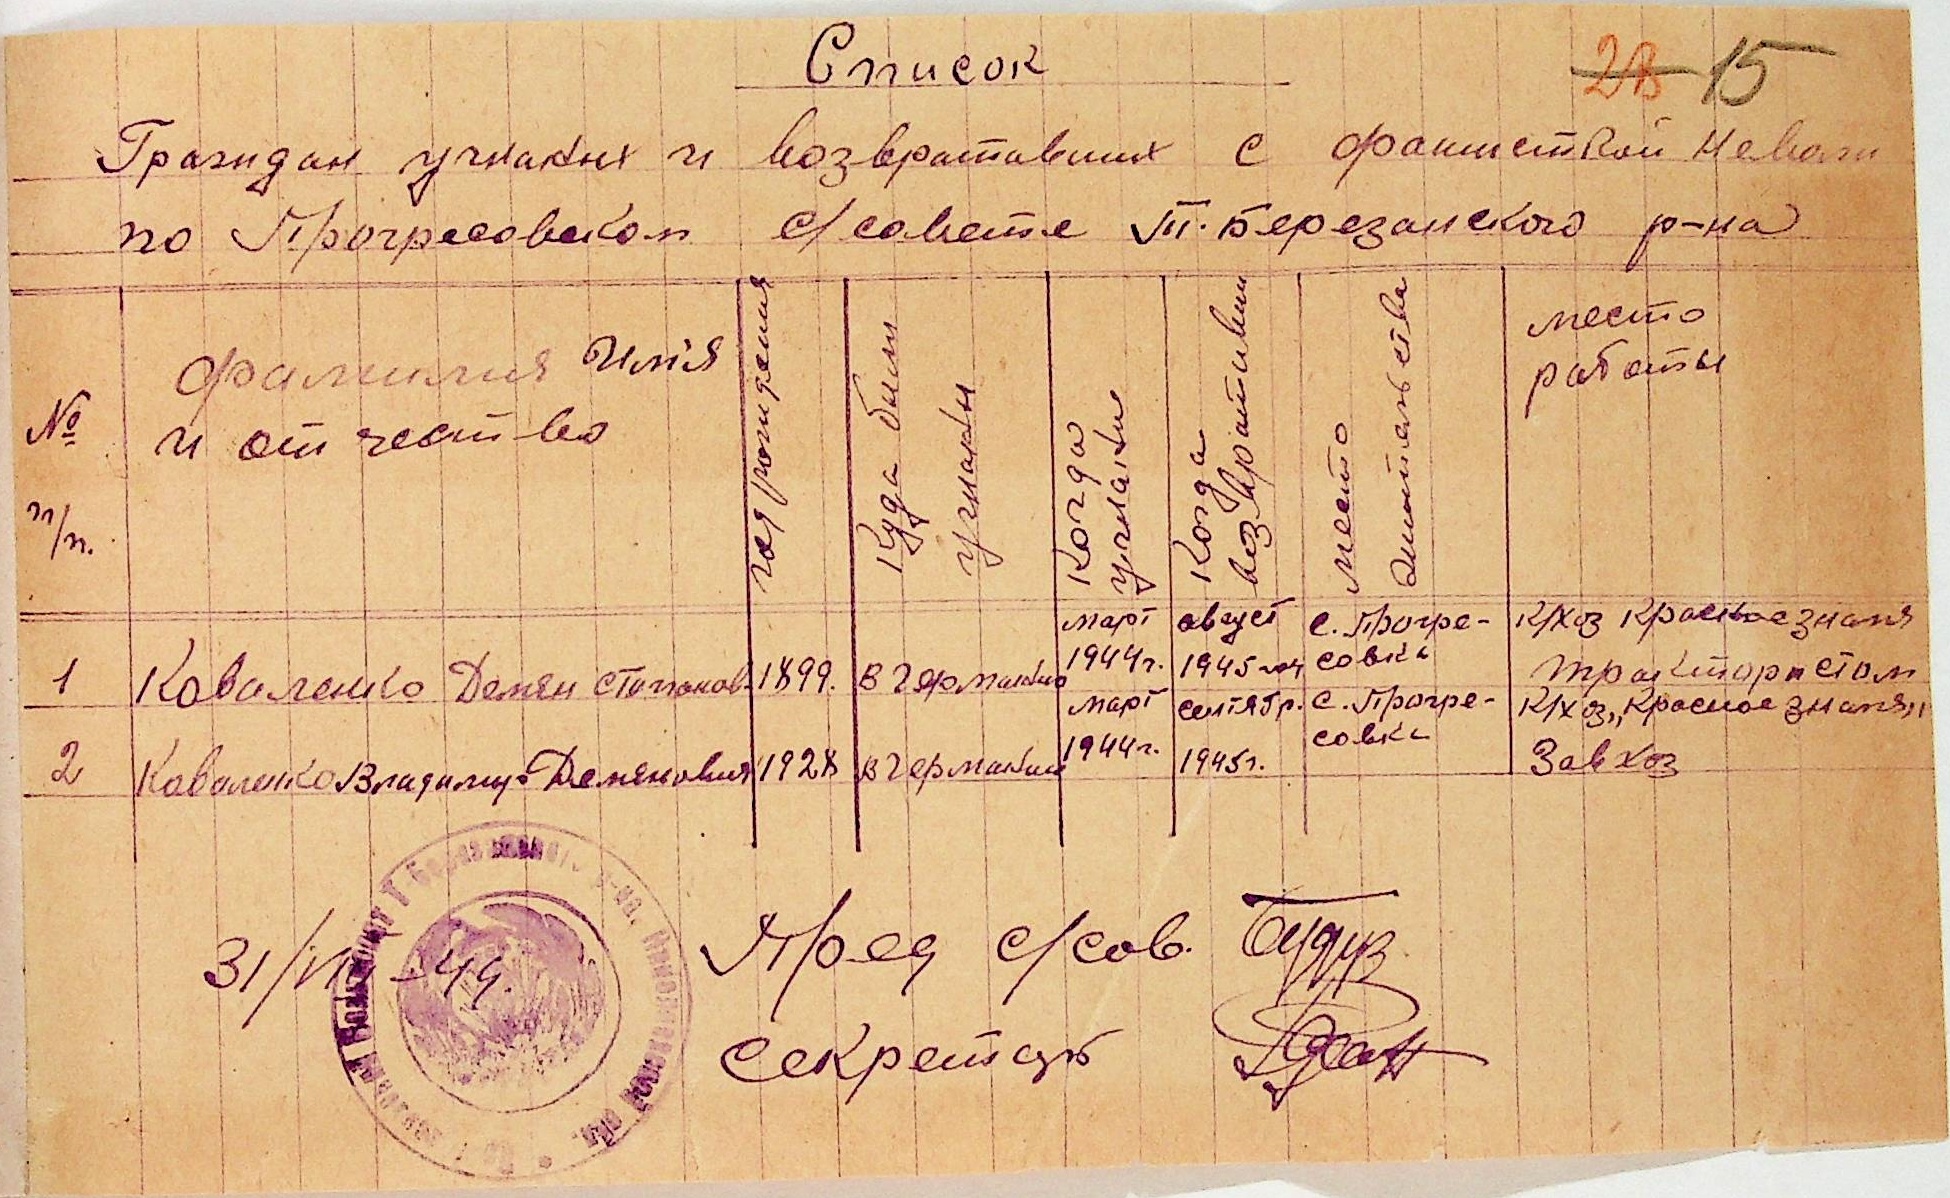 Список
28 15
Граждан угнаных и возвратавших с фашисткой неволи
по Прогресовском с/совете Т. Березанского р-на
№ п/п.
фамилия Имя и отчество
год рождения
Куда были угнаты
Когда угнаные
Когда возвративши
место жительства
место работы
1 Коваленко Демян Степанов. 1899. в Германию март 1944г. август 1945 год с. Прогре-совка К/хоз Красное знамя трактористом
2 Коваленко Владимир Демянович 1928 в Германии март 1944г. сентябр. 1945г. с. Прогре-совка К/хоз „Красное знамя„ Завхоз
31/VIII-49.
Пред с/сов.
Секретарь